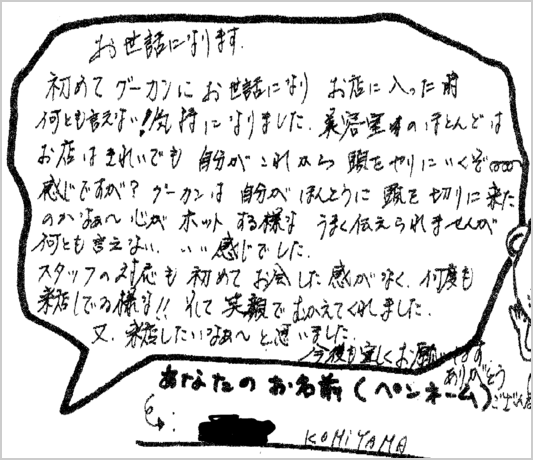 お世話になります.
初めて グーカンに お世話になり お店に 入った 前
何とも言えない!気持になりました. 美容室のほとんどは
お店は きれいでも 自分が これから 頭を やりに いくぞ
感じですが? グーカンは 自分が ほんとうに 頭を 切りに 来た
のかなぁ〜 心が ホット する様な うまく伝えられませんが
何とも 言えない. いい感じでした.
スタッフの対応も 初めて お会した 感がなく. 何度も
来店してる様な!! そして 笑顔で むかえてくれました.
又. 来店したいなぁ〜 と思いました.
今後も宜しくお願います
ありがとう
ございま
あなたの お名前 (ペンネーム)
KOMIYAMA